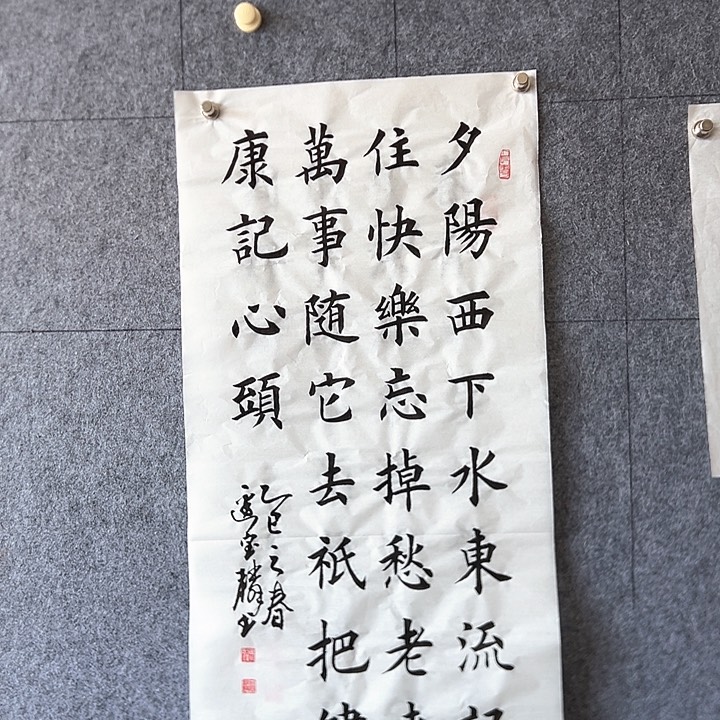 夕陽西下水東流記
住快樂忘掉愁老
萬事随它去祇把健
康記心頭
乙巳之春